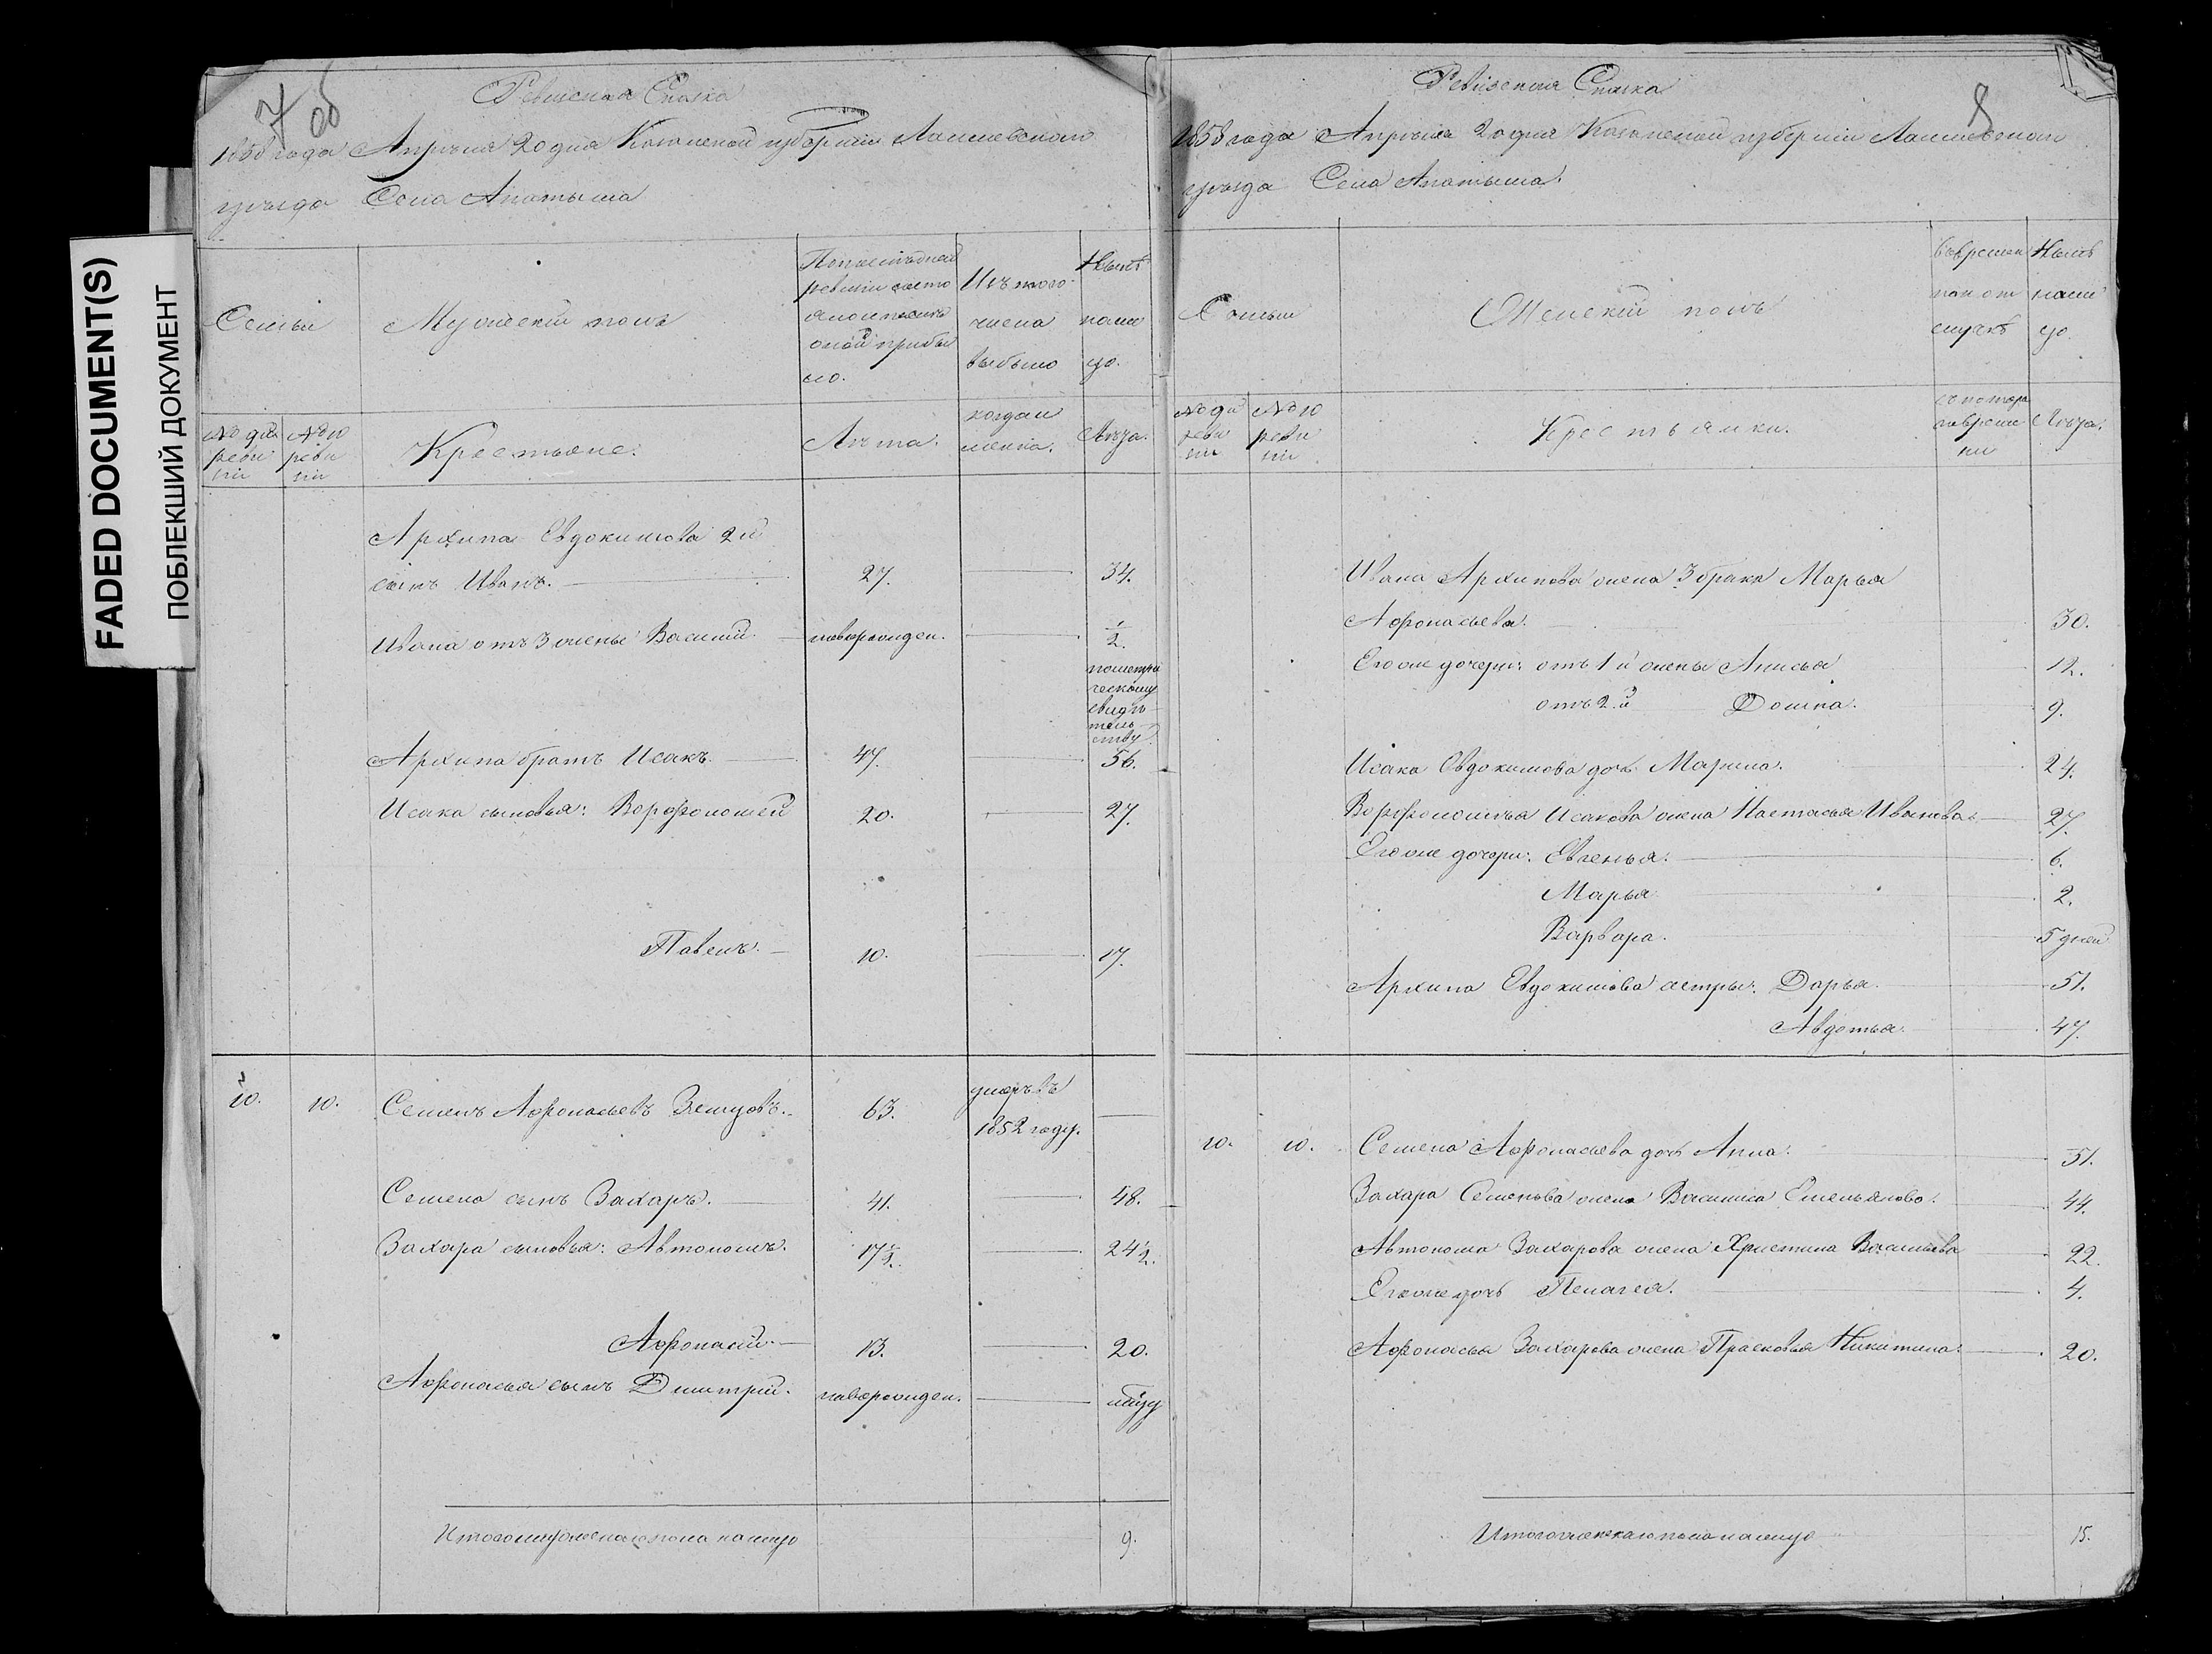 FADED DOCUMENT(S)
ПОБЛЕКШИЙ ДОКУМЕНТ
7 об
Ревизская Сказка
1858 года Апрѣля 20 дня Казанской губерніи Лаишевскаго
уѣзда Села Апатыша
Семьи
Мужескій полъ
По послѣдней
ревизіи состо
яло и послѣ
оной прибы
ло.
Изъ того
числа
выбыло
Нынѣ
на ли
цо.
№ 9й
реви
зіи
№ 10
реви
зіи
Крестьяне.
Лѣта.
когда и
менно.
Лѣта.
Архипа Евдокимова 2й
сынъ Иванъ. 27. 34.
Ивана отъ 3 жены Василій. новорожден. ½.
по метри
ческому
свидѣ
тель
ству.
Архипа братъ Исакъ. 47. 56.
Исака сыновья: Ворфоломей 20. 27.
Павелъ. 10. 17.
10. 10. Семенъ Афонасьевъ Земцовъ. 63. умеръ въ
1852 году.
Семена сынъ Захаръ. 41. 48.
Захара сыновья: Автономъ. 17½. 24½.
Афонасій. 13. 20.
Афонасья сынъ Дмитрій. новорожден.
Итого мужескаго пола на лицо 9.
8
Ревизская Сказка
1858 года Апрѣля 20 дня Казанской губерніи Лаишевскаго
уѣзда Села Апатыша.
Семьи
Женскій полъ
Во времен
ной от
лучкѣ
Нынѣ
на ли
цо.
№ 9й
реви
зіи
№ 10
реви
зіи
Крестьянки.
съ котора
го времѣ
ни
Лѣта.
Ивана Архипова жена 3 брака Марья
Афонасьева. 30.
Его же дочери: отъ 1й жены Анисья 12.
отъ 2й Домна. 9.
Исака Овдокимова дочь Марина. 24.
Ворфоломѣя Исакова жена Настасья Иванова. 27.
Его же дочери: Евгенья. 6.
Марья 2.
Варвара. 5 дней
Архипа Евдокимова сестры: Дарья. 51.
Авдотья. 47.
10. 10. Семена Афонасьева дочь Анна. 31.
Захара Семенова жена Василиса Емельянова. 44.
Автонома Захарова жена Христина Васильева 22.
Его же дочь Пелагея. 4.
Афонасья Захарова жена Прасковья Никитина. 20.
Итого женскаго пола на лицо 15.